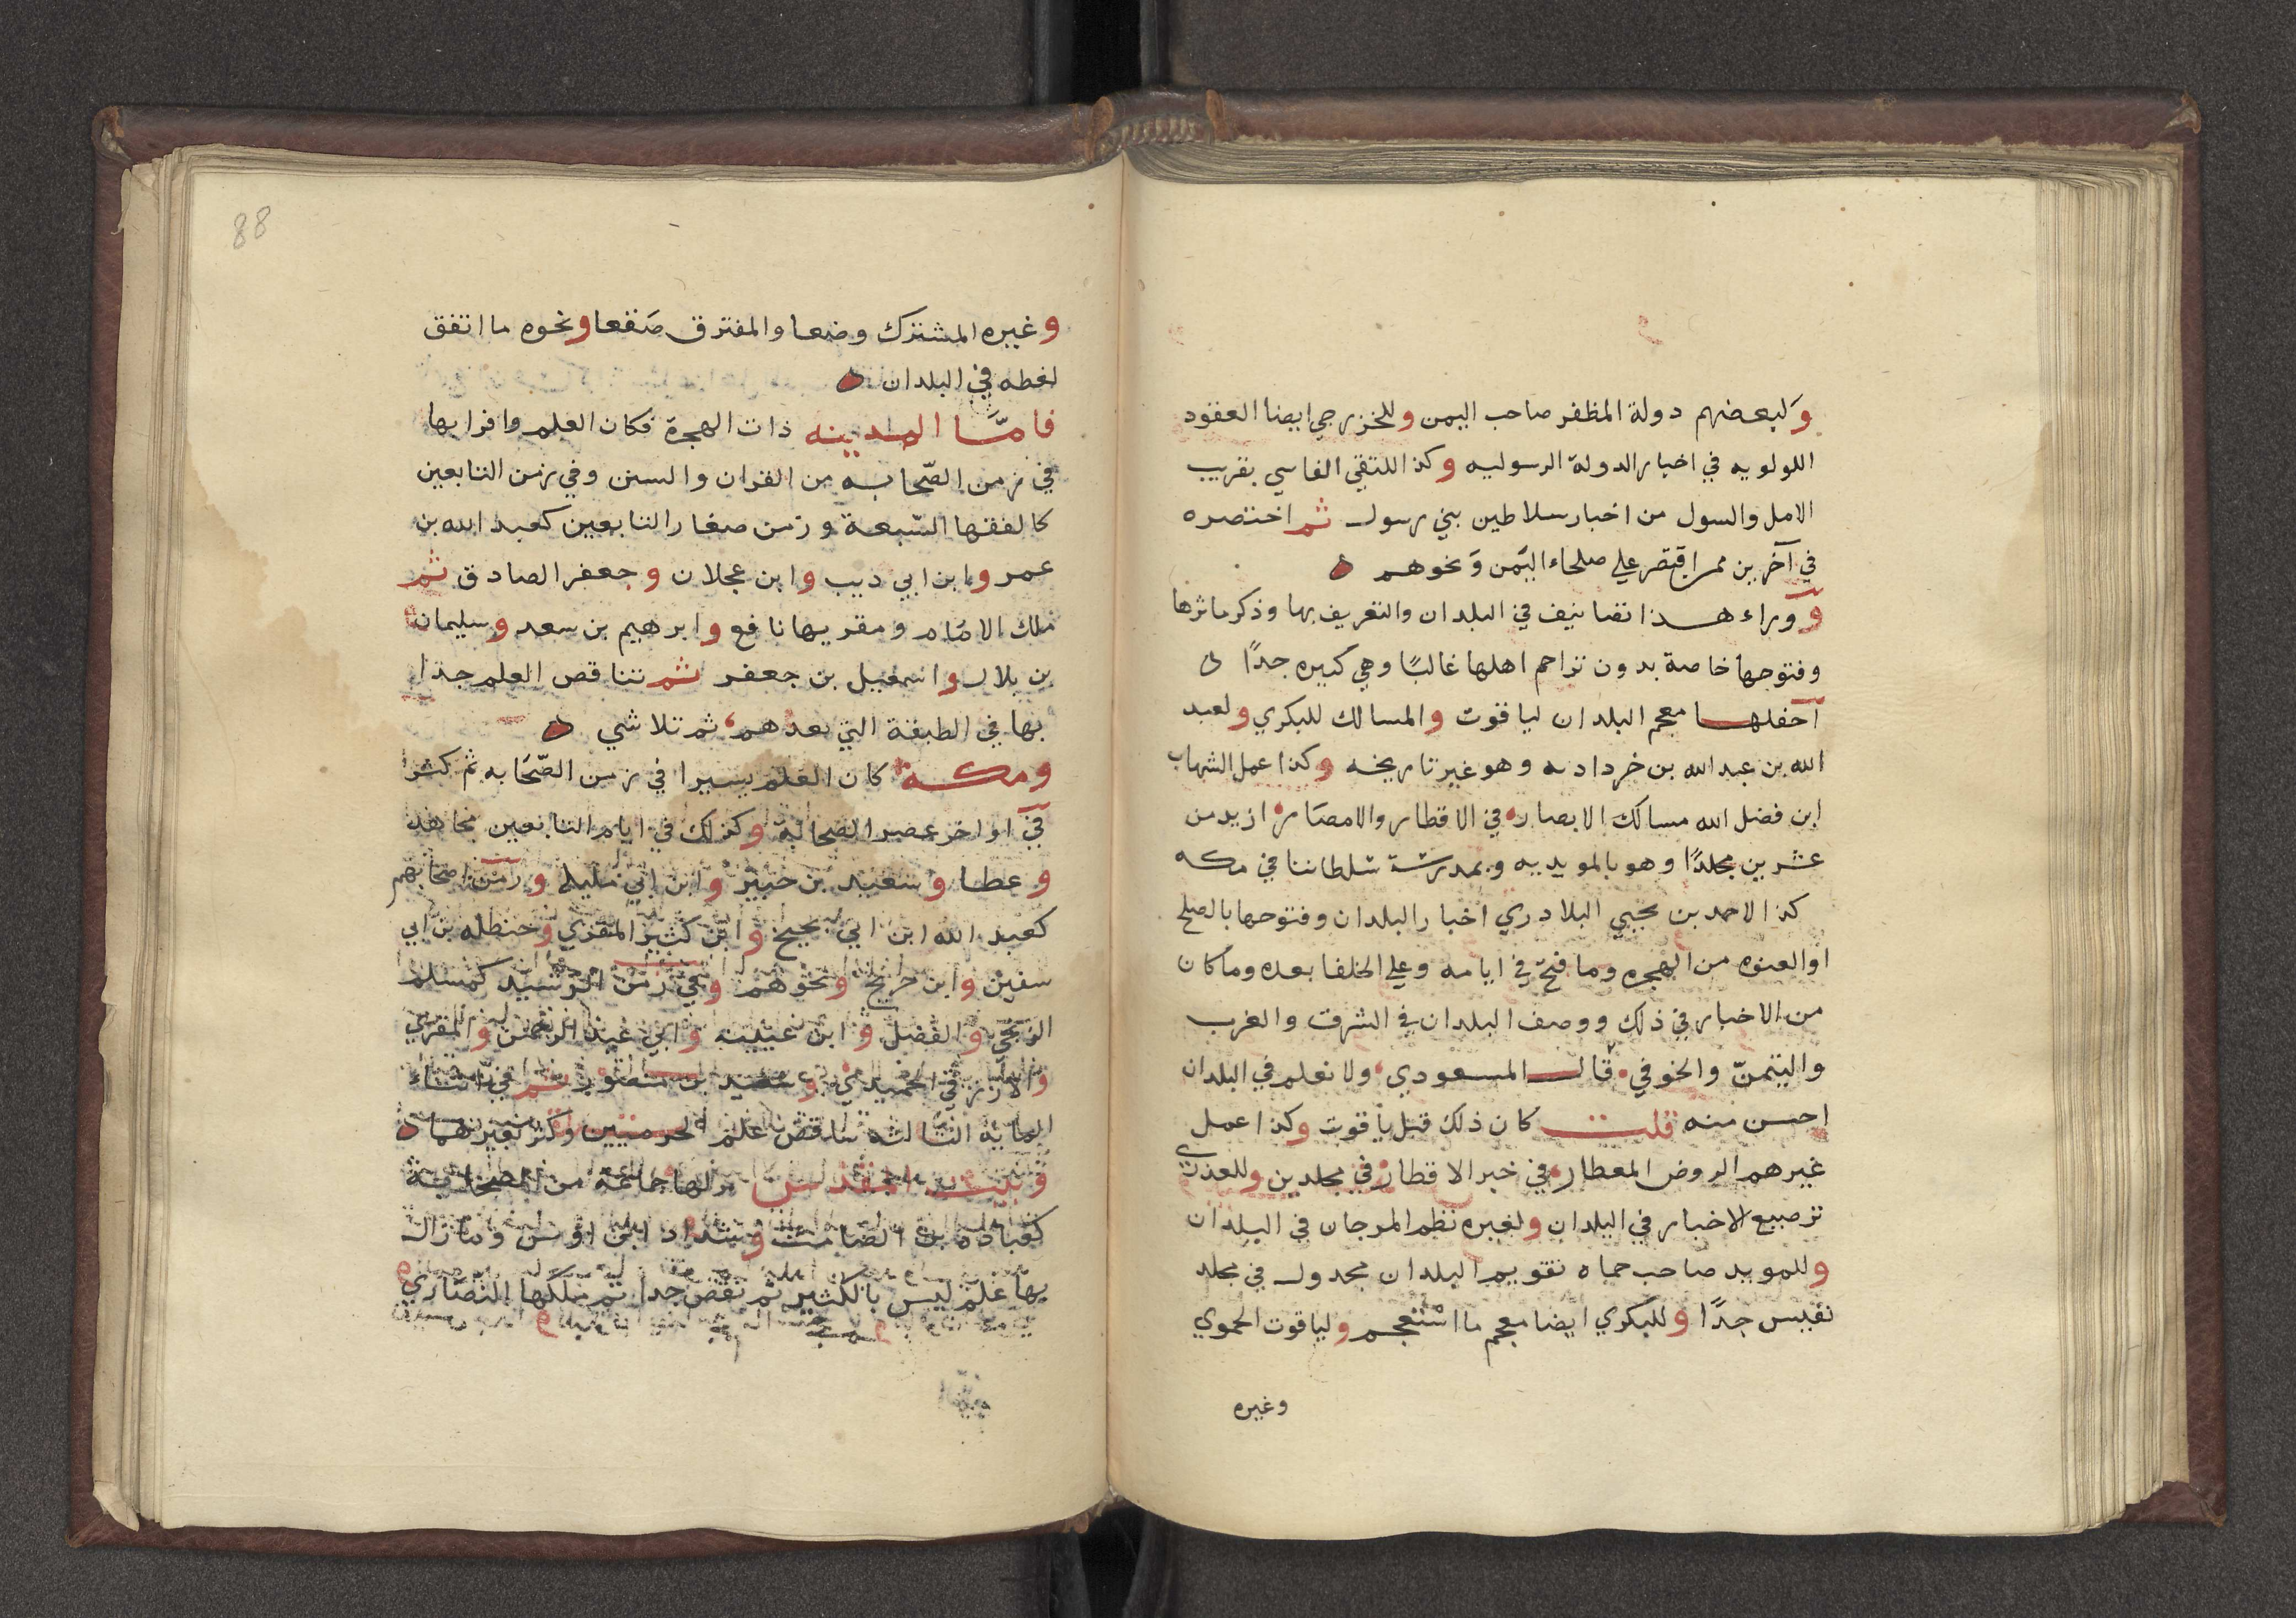 ولبعضهم دولة المظفر صاحب اليمن وللخزرجي ايضا العقود
اللولويه في اخبار الدولة الرسوليه وكذا للتقي الفاسي تقريب
الامل والسول من اخبار سلاطين بني رسول ثم اختصره
في آخرين ممن اقتصر علي صلحاء اليمن ونحوهم
ووراء هذا تصانيف في البلدان والتعريف بها وذكر ماثرها
وفتوحها خاصة بدون تراجم اهلها غالبًا وهي كثيره جدًا
احفلها معجم البلدان لياقوت والمسالك للبكري ولعبد
الله بن عبد الله بن خردادبه وهو غير تاريخه وكذا عمل الشهاب
ابن فضل الله مسالك الابصار في الاقطار والامصار ازيد من
عشرين مجلدًا وهو بالمويديه وبمدرسة سلطاننا في مكه
كذا لاحمد بن يحيي البلادري اخبار البلدان وفتوحها بالصلح
او العنوه من الهجره وما فتح في ايامه وعلي الخلفا بعده وما كان
من الاخبار في ذلك ووصف البلدان في الشرق والغرب
واليتمن والخوفي قال المسعودي ولا نعلم في البلدان
احسن منه قلت كان ذلك قبل ياقوت وكذا عمل
غيرهم الروض المعطار في خبر الاقطار في مجلدين وللعذري
ترصيع الاخبار في البلدان ولغيره نظم المرجان في البلدان
وللمويد صاحب حماه تقويم البلدان مجدول في مجلد
نفيس جدًا وللبكري ايضا معجم ما استعجم ولياقوت الحموي
وغيره
88
وغيره المشترك وضعا والمفترق صقعا ونحوه ما اتفق
لفظه في البلدان
فامّا المدينه ذات الهجرة فكان العلم وافرا بها
في زمن الصّحابه من القران والسنن وفي زمن التابعين
كالفقها السّبعة وزمن صغار التابعين كعبد الله بن
عمر وابن ابي ديب وابن عجلان وجعفر الصادق ثم
ملك الامام ومقريها نافع وابرهيم بن سعد وسليمان
بن بلال واسمعيل بن جعفر ثم تناقص العلم جدا
بها في الطبقة التي بعدهم ثم تلاشي
ومكة كان العلم يسيرا في زمن الصّحابه ثم كثر
في اواخر عصر الصحابة وكذلك في ايام التابعين مجاهد
وعطا وسعيد بن جبير وابن ابي مليكه وزمن اصحابهم
كعبد الله ابن ابي نجيح وابن كثير المقري وحنظله بن ابي
سفين وابن جريج ونحوهم وفي زمن الرشيد كمسلم
الزنجي والفضيل وابن عيينه وابي عبد الرحمن المقري
والازرقي والحميدي وسعيد بن منصور ثم في اثناء
المايه الثالثه تناقص علم الحرمين وكثر بغيرهما
وبيت المقدس نزلها جماعة من الصحابة
كعبادة بن الصامت وشداد ابن اوس وما زال
بها علم ليس بالكثير ثم نقص جدا ثم ملكها النصاري